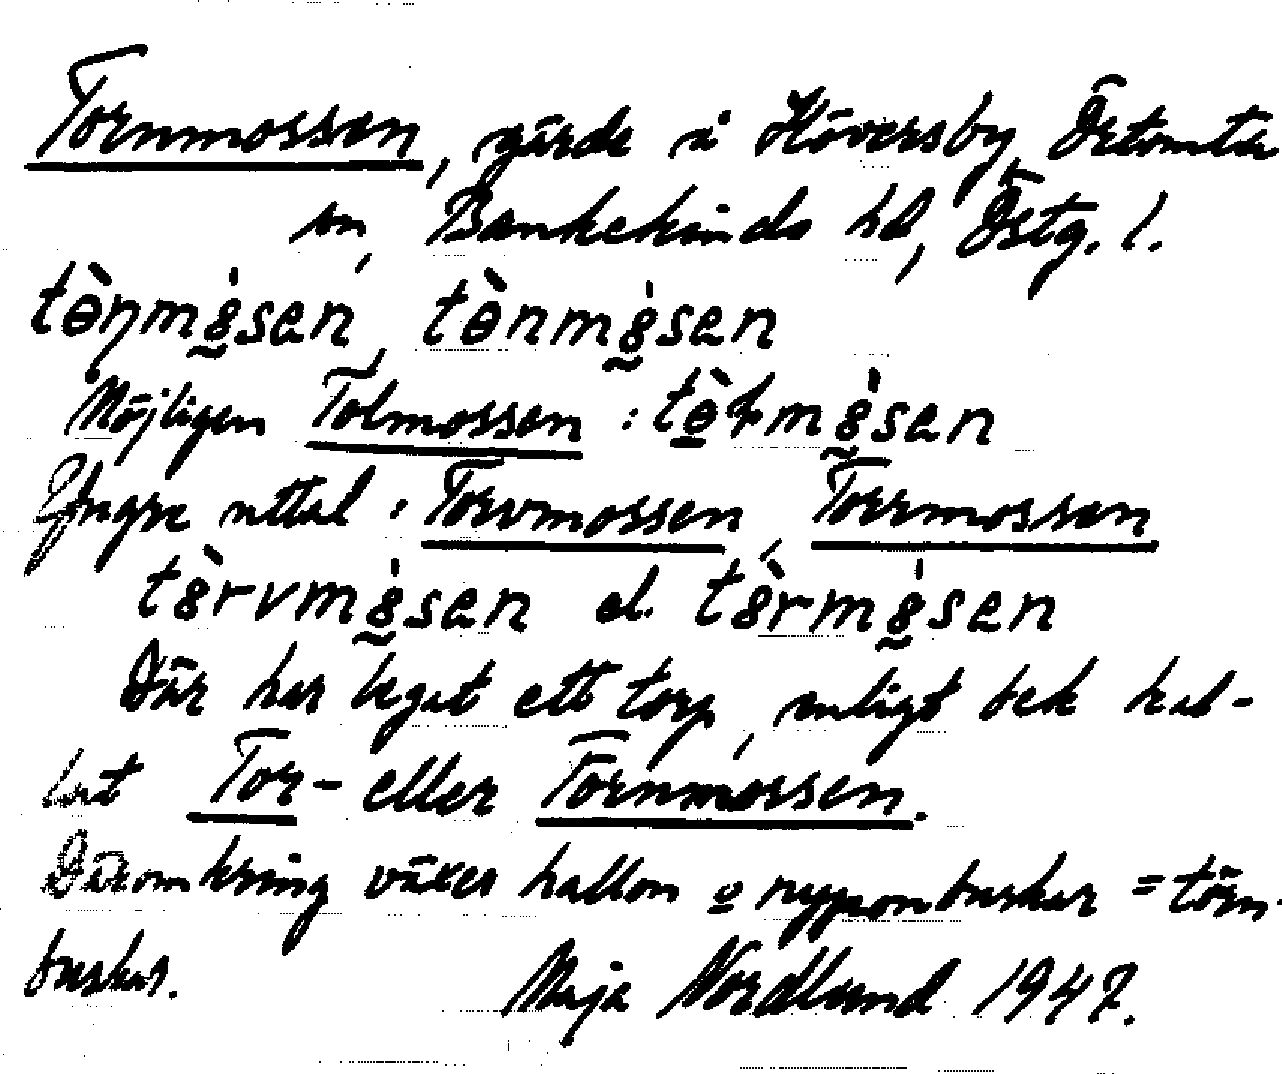 Tornmossen, gärde i Höversby, Örtomta
sn, Bankekinds hd, Östg. l.
tɵ̀ŋmo̰̍sen, tɵ̀nmo̰̍sen
Möjligen Tolmossen:
Yngre uttal: Torvmossen, Torrmossen
tòrvmo̰̍sen el. tòrmo̰̍sen
Där har legat ett torp, enligt bek kal-
lat Tor- eller Törnmossen.
Däromkring växer hallon o nyponbuskar = törn-
buskar. Maja Nordlund 1947.